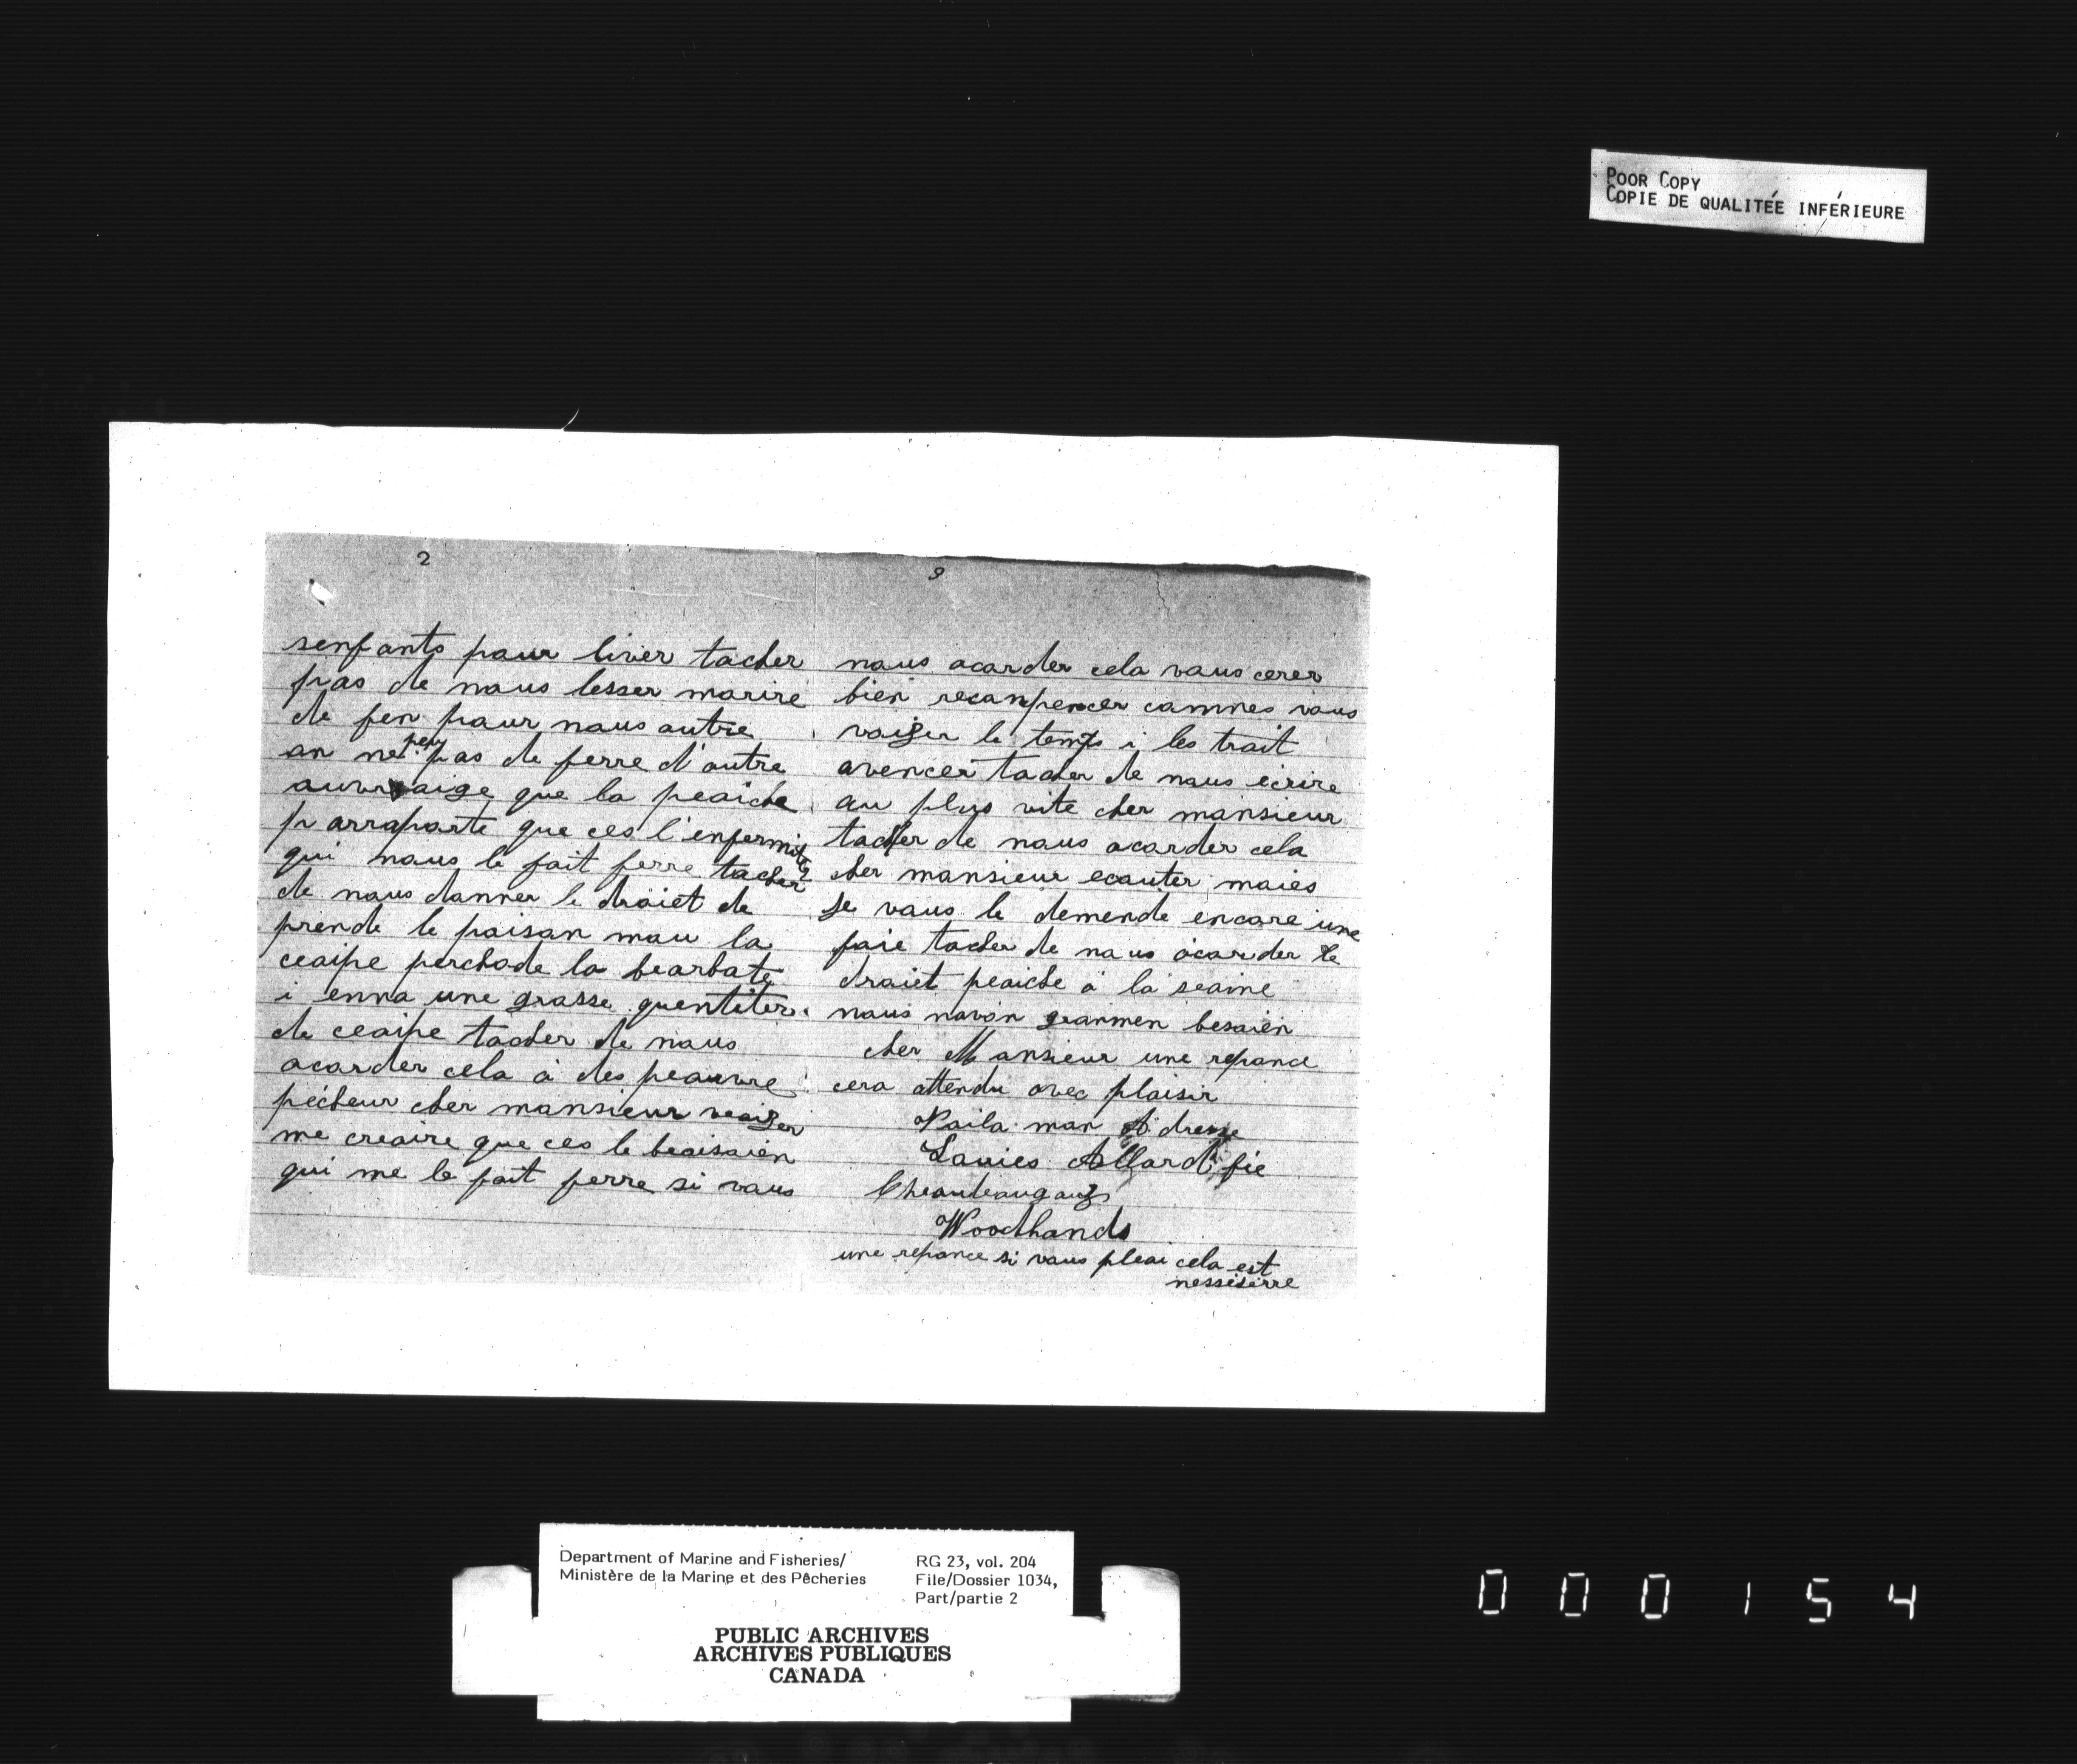 POOR COPY
COPIE DE QUALITÉE INFÉRIEURE
2
senfants paur liver tacher
pas de naus lesser marire
de fen paur naus autre
an ne peu pas de ferre d'autre
auvraige que la peaiche
parraparte que ces l'enfermité
qui naus le fait ferre tacher
de naus danner le draiet de
prende le paisan mau la
ceaipe perchade la bearbate
i enna une grasse quentiter
de ceaipe tacher de naus
acarder cela à des peauvre
pécheur cher mansieur veaiser
me creaire que ces le beaisaien
qui me le fait ferre si vaus
3
naus acarder cela vaus cerer
bien recampencer camnes vaus
vaiser le temps i les trait
avencer tacher de naus écrire
au plus vite cher mansieur
tacher de naus acarder cela
cher mansieur ecauter maies
je vaus le demende encare une
faie tacher de naus acarder le
draiet peaiche à la seaine
naus navon granmen besaien
cher Mansieur une repance
cera attendu avec plaisir
Vaila man Adresse
Lauies Allard fie
Cheauteaugauy
Woodhands
une repance si vaus pleai cela est
nessiserre
Department of Marine and Fisheries/
Ministère de la Marine et des Pêcheries
RG 23, vol. 204
File/Dossier 1034,
Part/partie 2
PUBLIC ARCHIVES
ARCHIVES PUBLIQUES
CANADA
000154